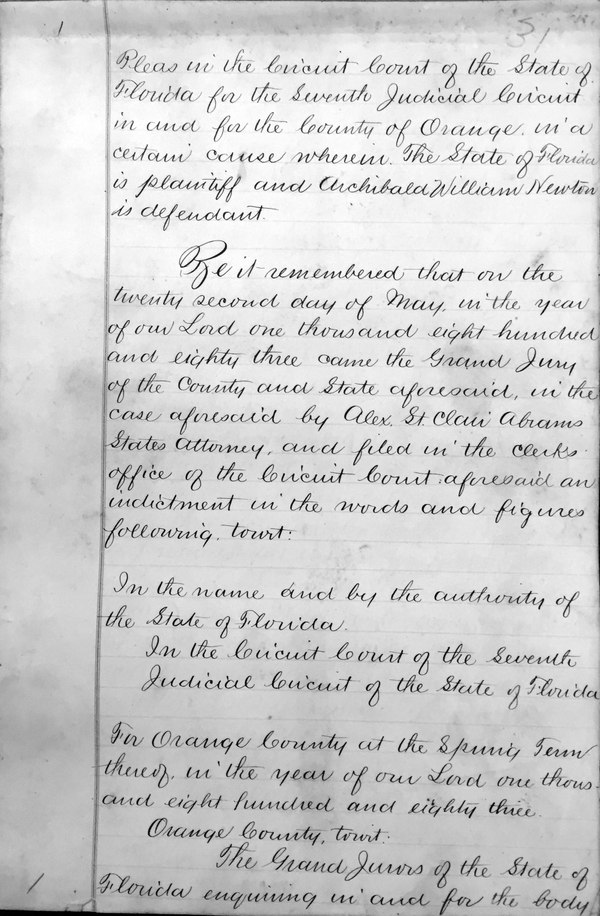 1
31
Pleas in the Circuit Court of the State of
Florida for the Seventh Judicial Circuit
in and for the County of Orange. in a
certain cause wherein. The State of Florida
is plaintiff and Archibald William Newton
is defendant.
Be it remembered that on the
twenty second day of May, in the year
of our Lord one thousand eight hundred
and eighty three came the Grand Jury
of the County and State aforesaid, in the
case aforesaid by Alex. St. Clair Abrams
States Attorney, and filed in the clerks
office of the Circuit Court aforesaid an
indictment in the words and figures
following. towit:
In the name and by the authority of
the State of Florida.
In the Circuit Court of the Seventh
Judicial Circuit of the State of Florida
For Orange County at the Spring Term
thereof, in the year of our Lord one thous-
and eight hundred and eighty three.
Orange County, towit:
The Grand Jurors of the State of
Florida enquiring in and for the body
1